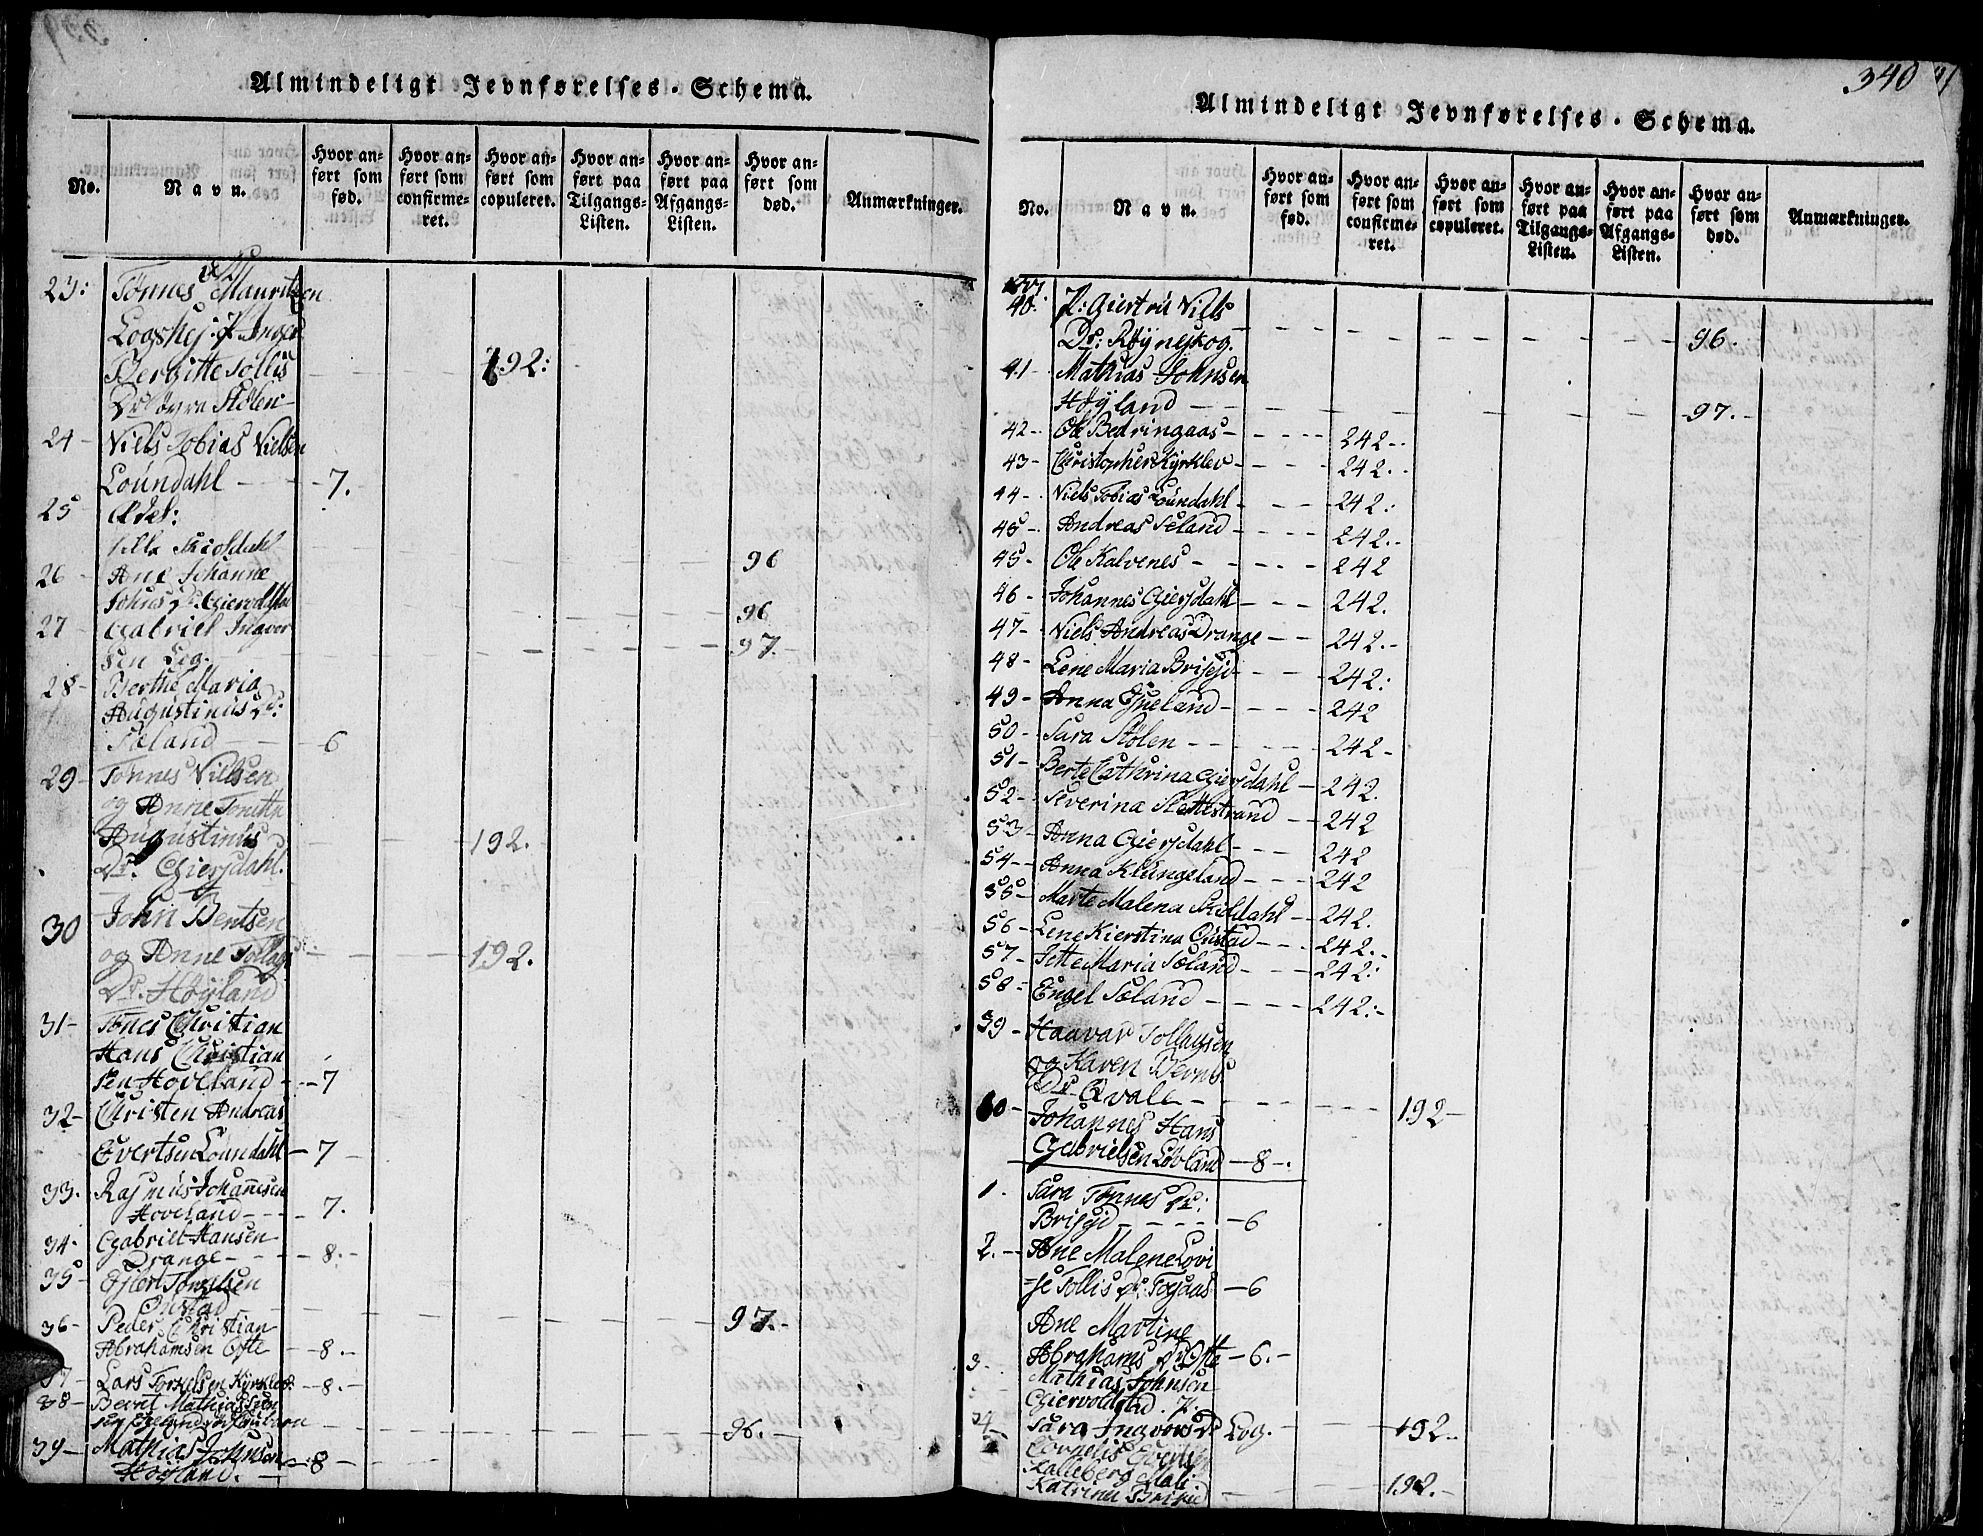 Almindeligt Jevnførelses-Schema.
No. Navn. Hvor anført som fød. Hvor anført som confirmeret. Hvor anført som copuleret. Hvor anført paa Tilgangs-Listen. Hvor anført paa Afgangs-Listen. Hvor anført som død. Anmærkninger.
23: Tønnes Mauritzen
Logshej: &
Bergitte Tollis 192:
Dr. øvre Stølen
24 Niels Tobias Nielsen
Loundahl 7.
25
Skioldahl 96
26 Ane Johanne
Johns Dr. 96
27 Gabriel Ingver
sen Leg. 97.
28 Berthe Maria
Augustinus Dr:
Sæland 6
29 Tønnes Nielsen
og Anne
Augustinus 192.
Dr. Giersdahl.
30 John Bentsen
og Anne Tollags 192.
Dr. Høyland
31 Tønes Christian
Hans Christian
sen Hoveland 7
32 Christen Andreas
Evertsen Loundahl 7
33. Rasmus Johanesen
Hoveland 7.
34. Gabriel Hansen
Drange 8.
35
97.
36 Peder Christian
Abrahamsen Ofte 8.
37 Lars Torkelsen Kyrklev 8.
38 Bernt Mathiassen
96.
39 Mathias Johnsen 8
Høyland.
340
Almindeligt Jevnførelses-Schema.
No. Navn. Hvor anført som fød. Hvor anført som confirmeret. Hvor anført som copuleret. Hvor anført paa Tilgangs-Listen. Hvor anført paa Afgangs-Listen. Hvor anført som død. Anmærkninger.
40. Niels
Dr: Røyneskog. 96.
41 Mathias Johnsen
Høyland 97.
42 Ole Bedringaas 242
43 Christopher Kyrklev 242.
44 Niels Tobias Loundahl 242.
45 Andreas Seland 242.
45 Ole Kalvenes 242
46 Johannes Giersdahl 242.
47 Niels Andreas Drange 242.
48 Lene Maria Briseid 242:
49 242
50 Sara Stølen 242
51 Berte Cathrina Giersdahl 242.
52 Severina Slettestrand 242
53 Anna Giersdahl 242
54 Anna Klungeland 242
55 Marte Malena Skioldahl 242.
56 Lene Kierstina 242.
57 Jette Maria Sæland 242:
58 Engel Sæland 242:
39 Haavar Tollagsen
og Karen Bernts
Dr. Qvale 192
60 Johannes Hans
Gabrielsen Lovland 8.
1. Sara Tønnes Dr:
Briseid 6
2. Ane Malene Lovi
se Tollis Dr: 6
Ane Martine
3 Abrahams Dr Ofte 6.
Mathias Johnsen
Giervoldstad. &
4 Sara Ingvers Dr Log. 192.
Cornelis Evertsen
Kalleberg
Katrina 192.